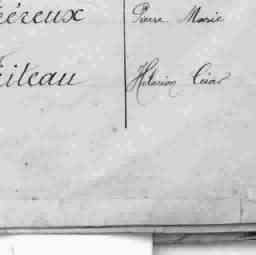 éreux Pierre Marie
iteau Hilarion César